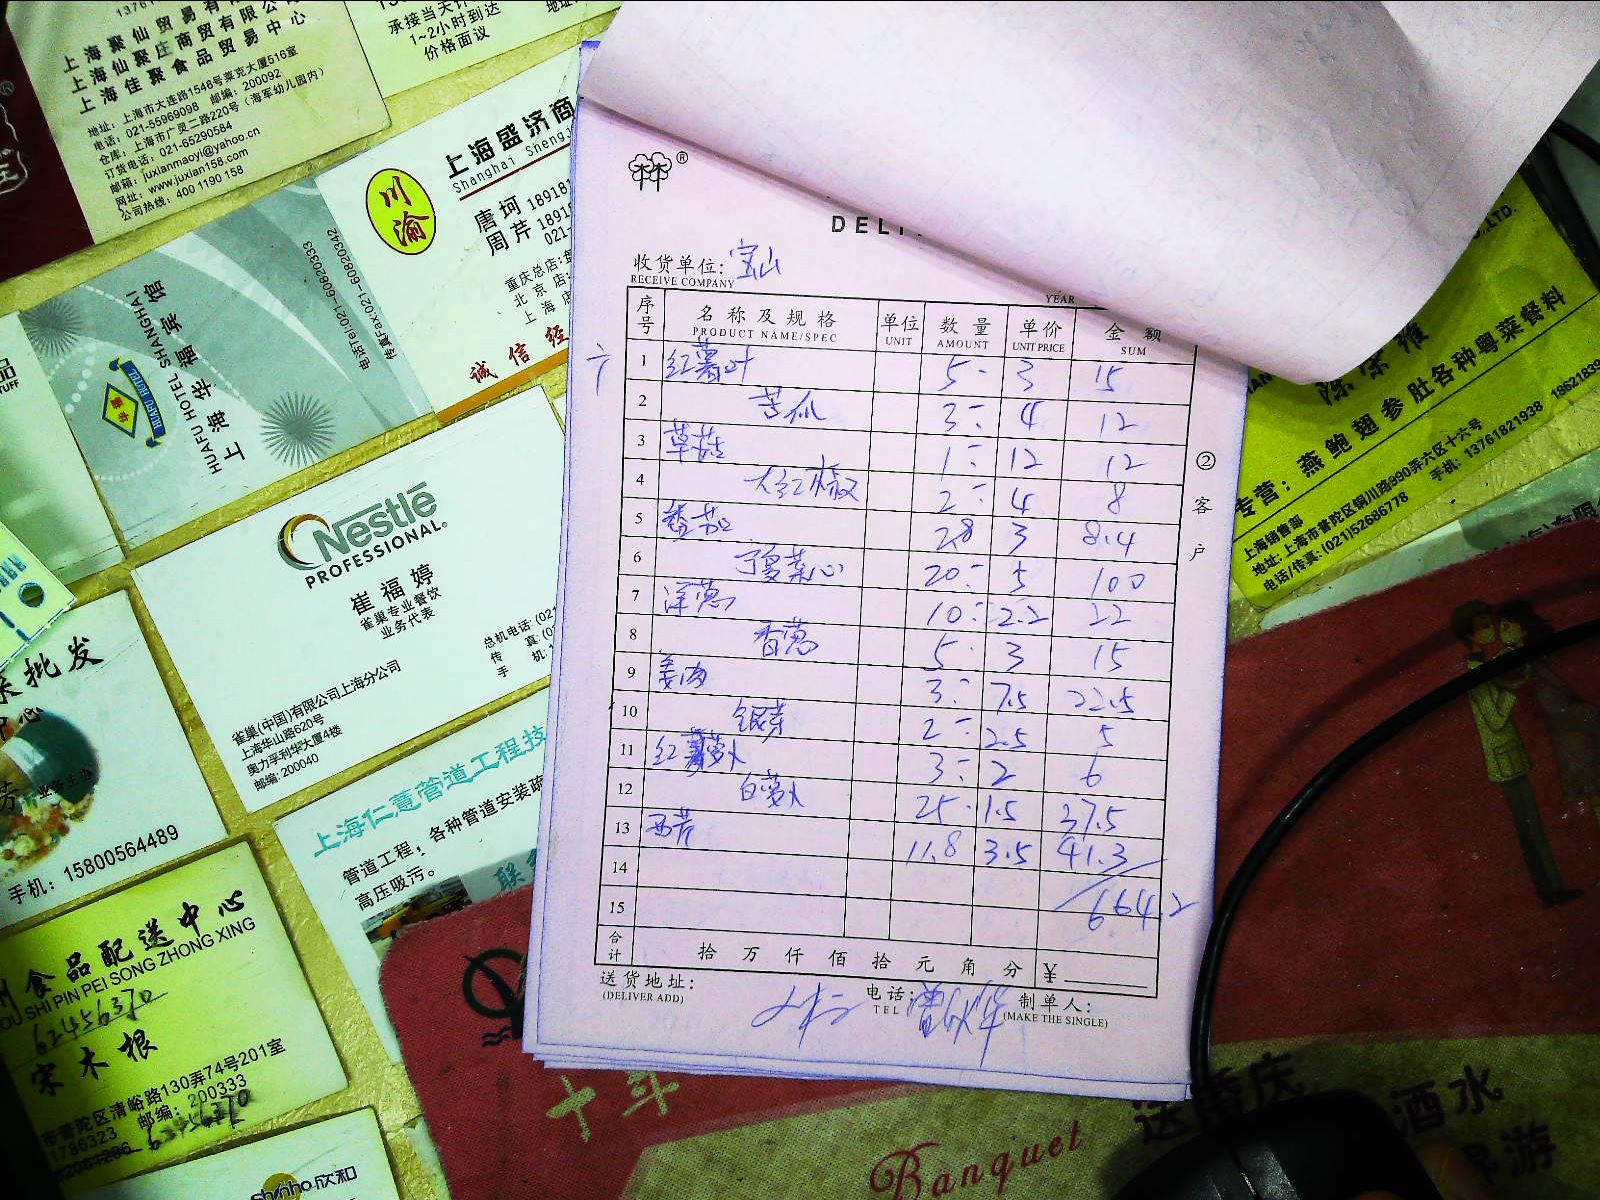 上海聚仙贸易有
上海仙聚庄商贸有限公
上海佳聚食品贸易中心
地址：上海市大连路1548号莱克大厦516室
电话：021-55969098 邮编：200092
仓库：上海市广灵二路220号（海军幼儿园内）
订货电话：021-65290584
邮箱：juxianmaoyi@yahoo.cn
网址：www.juxian158.com
公司热线：400 1190 158
承接当天
1~2小时到达
价格面议
川渝
上海盛济商
Shanghai Shengji
唐珂 18918
周芹 18918
021-
重庆总店:
北京店:
上海店
诚信经
上海华福宾馆
HUAFU HOTEL SHANGHAI
HUAFU HOTEL
电话Tel:021-60820333
传真Fax:021-60820342
Nestlé
PROFESSIONAL®
崔福婷
雀巢专业餐饮
业务代表
总机电话:(02
传 真:(0
手 机:1
雀巢(中国)有限公司上海分公司
上海华山路620号
奥力孚利华大厦4楼
邮编:200040
批发
手机：15800564489
上海仁薏管道工程技
管道工程，各种管道安装疏
高压吸污。
联
食品配送中心
SHI PIN PEI SONG ZHONG XING
62456370
宋木根
市普陀区清峪路130弄74号201室
邮编：200333
shinho欣和
®
DELI
收货单位：宝山
RECEIVE COMPANY
YEAR
序号 名称及规格 单位 数量 单价 金额
PRODUCT NAME/SPEC UNIT AMOUNT UNIT PRICE SUM
1 红薯叶 5- 3 15
2 苦瓜 3- 4 12
3 草菇 1- 12 12
4 大红椒 2- 4 8
5 番茄 2.8 3 8.4
6 宁夏菜心 20- 5 100
7 洋葱 10- 2.2 22
8 香葱 5- 3 15
9 姜肉 3- 7.5 22.5
10 银芽 2- 2.5 5
11 红萝卜 3- 2 6
12 白萝卜 25- 1.5 37.5
13 西芹 11.8 3.5 41.3
14
15 664.2
合计 拾 万 仟 佰 拾 元 角 分 ¥
送货地址：
(DELIVER ADD)
电话：
TEL
制单人：
(MAKE THE SINGLE)
②客户
LTD.
专营：燕鲍翅参肚各种粤菜餐料
上海销售部
地址：上海市普陀区铜川路990弄六区十六号
电话/传真：(021)52686778 手机：13761821938
十斗
Banquet
酒水